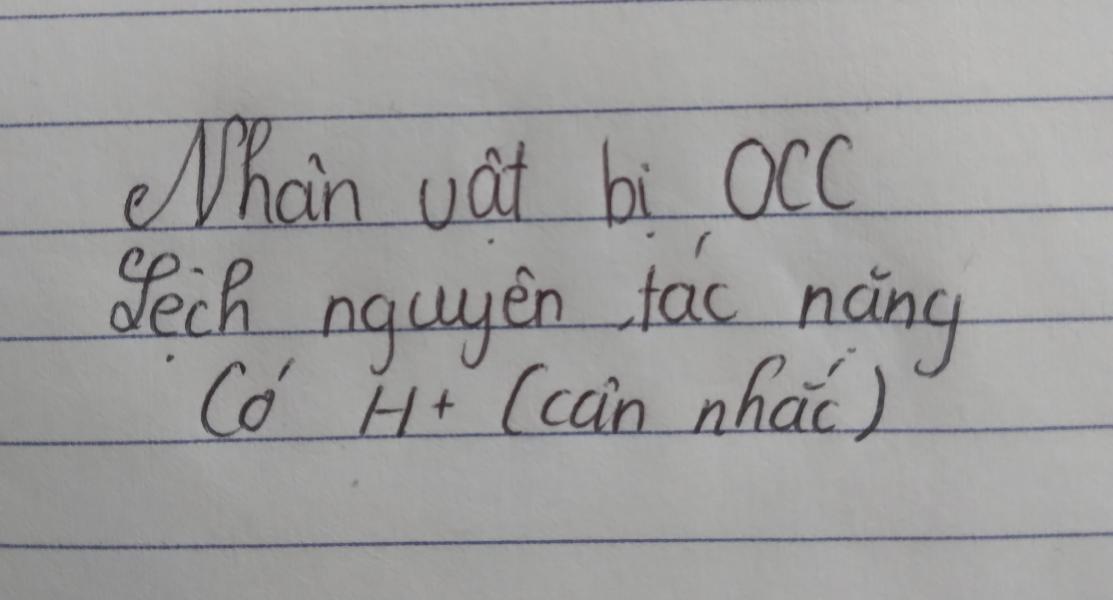 Nhân vật bị OCC
Lệch nguyên tác nặng
Có H+ (cân nhắc)